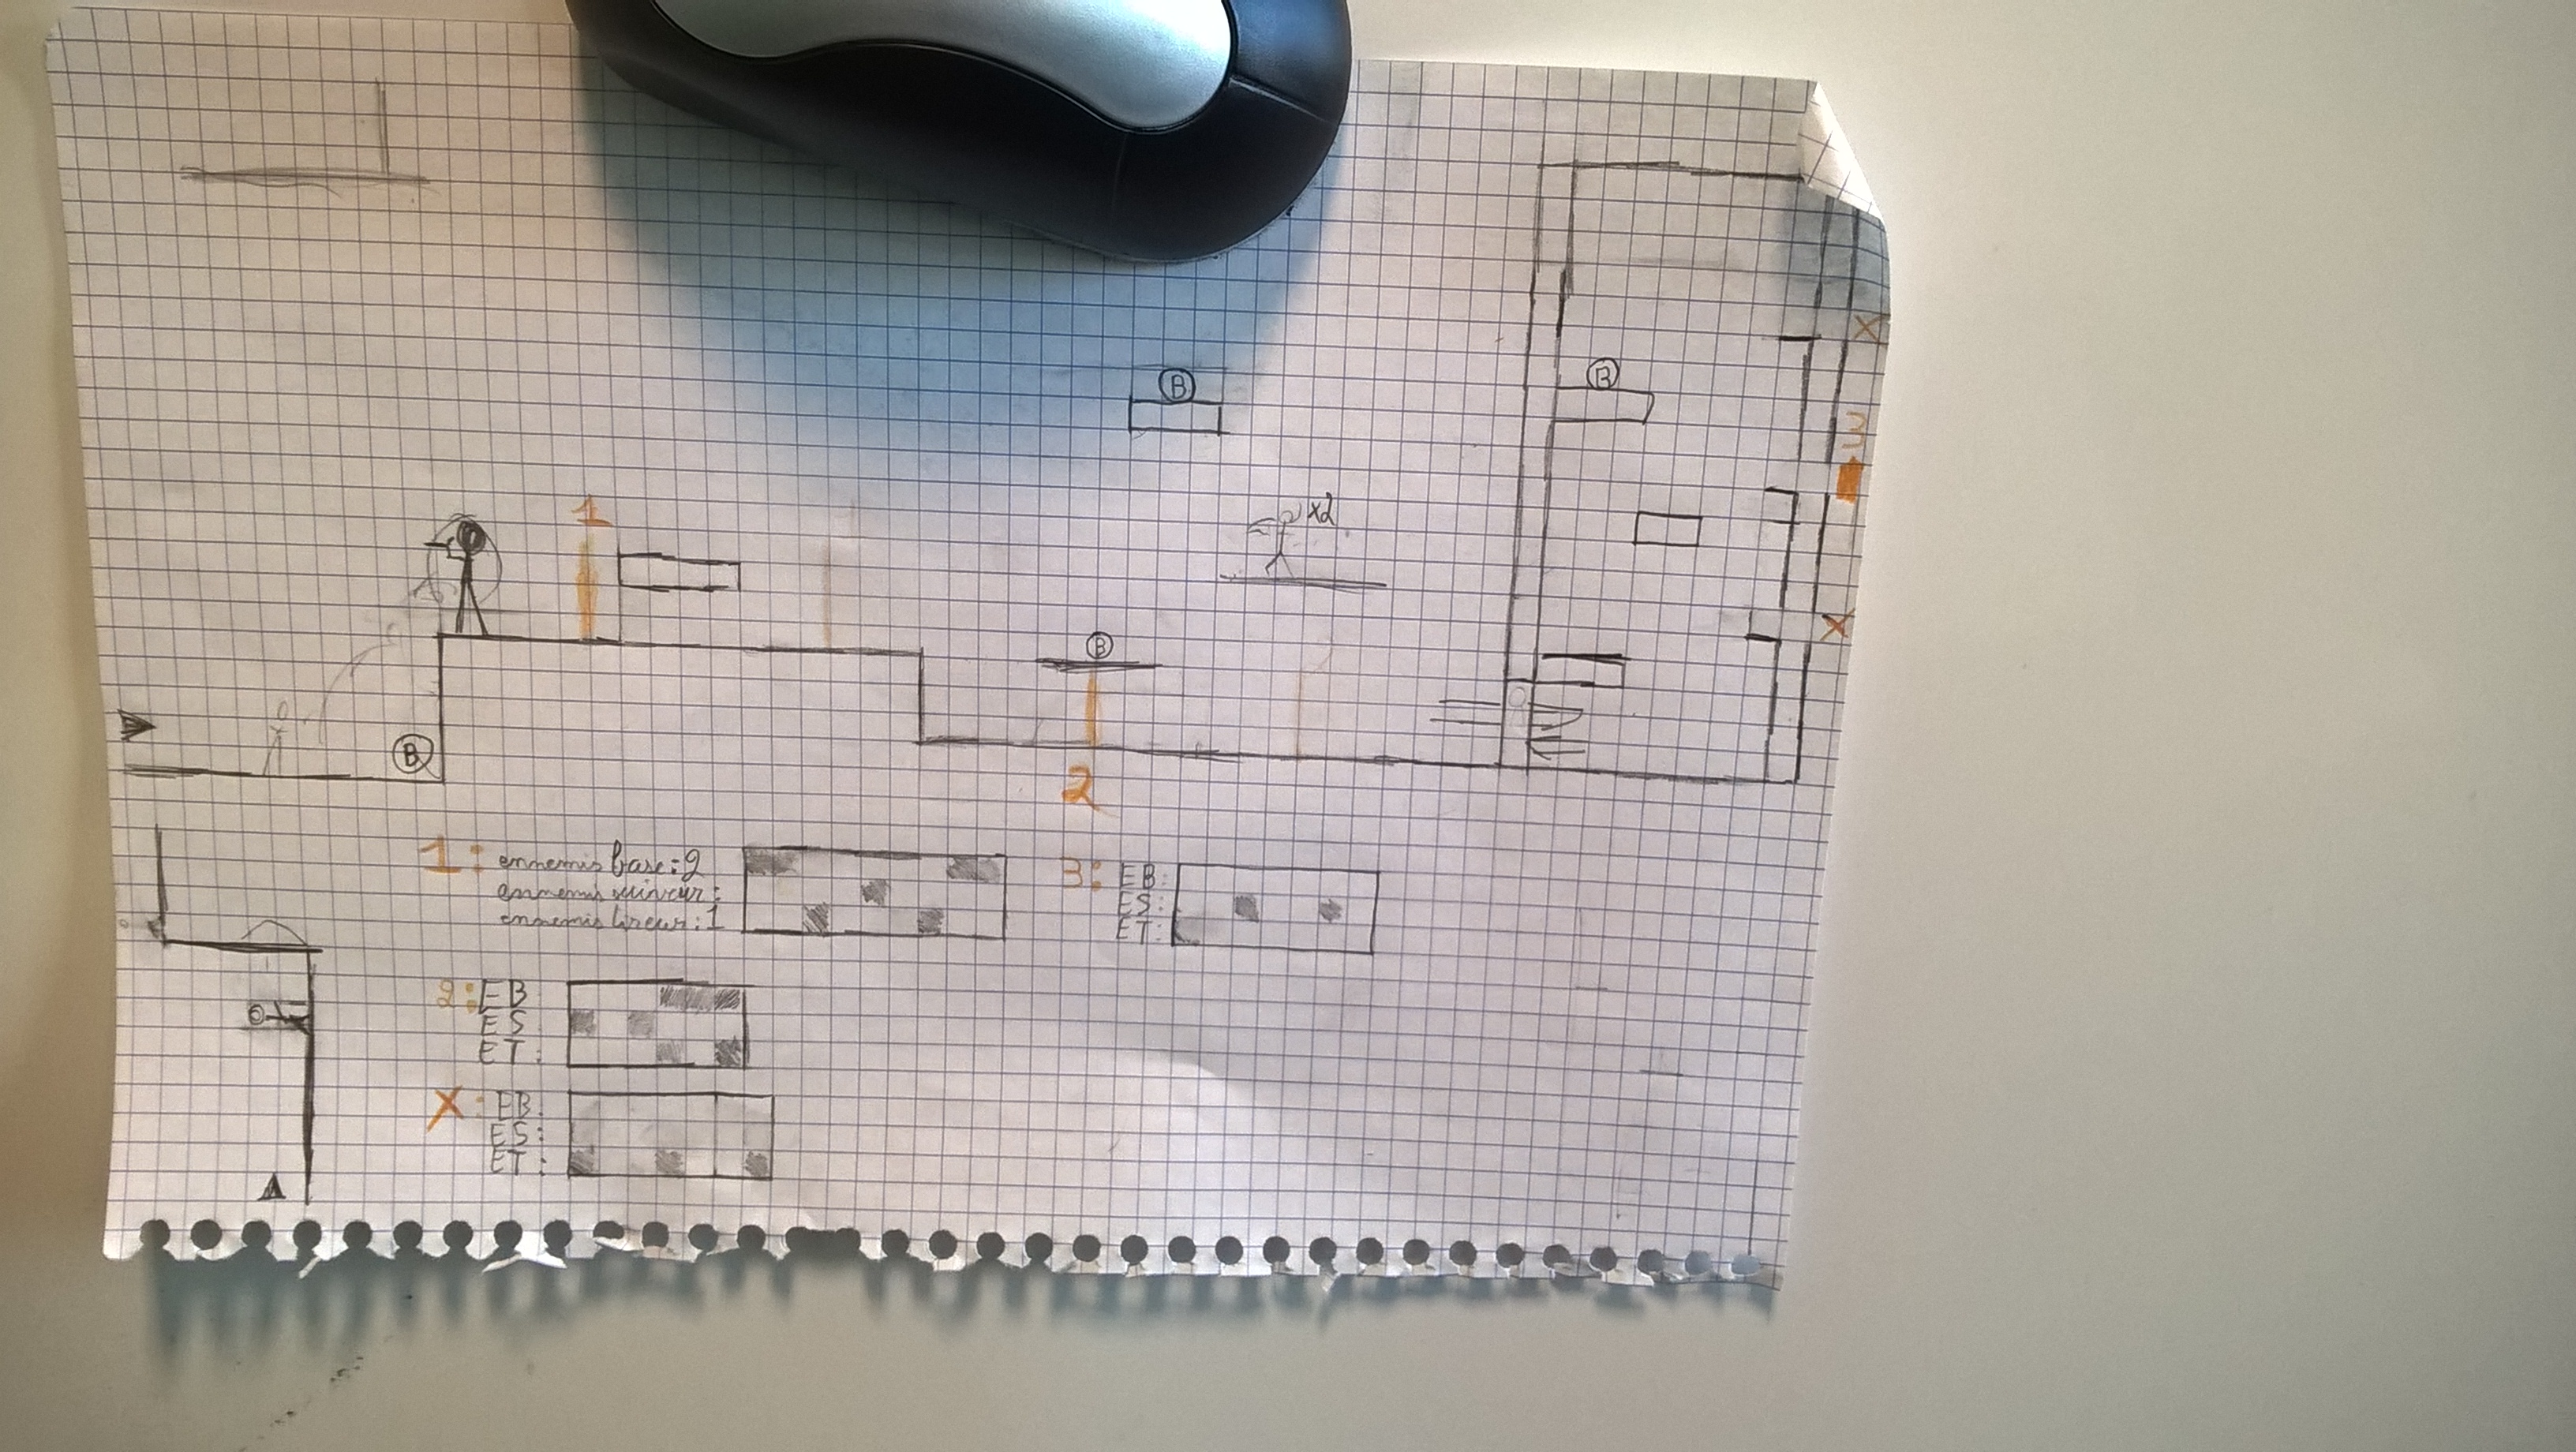 B
B
3
1
x2
B
B
2
1: ennemis base: 2
ennemis suiveur:
ennemis tireur: 1
3: EB:
ES:
ET:
2: EB
ES
ET:
X: EB:
ES:
ET: